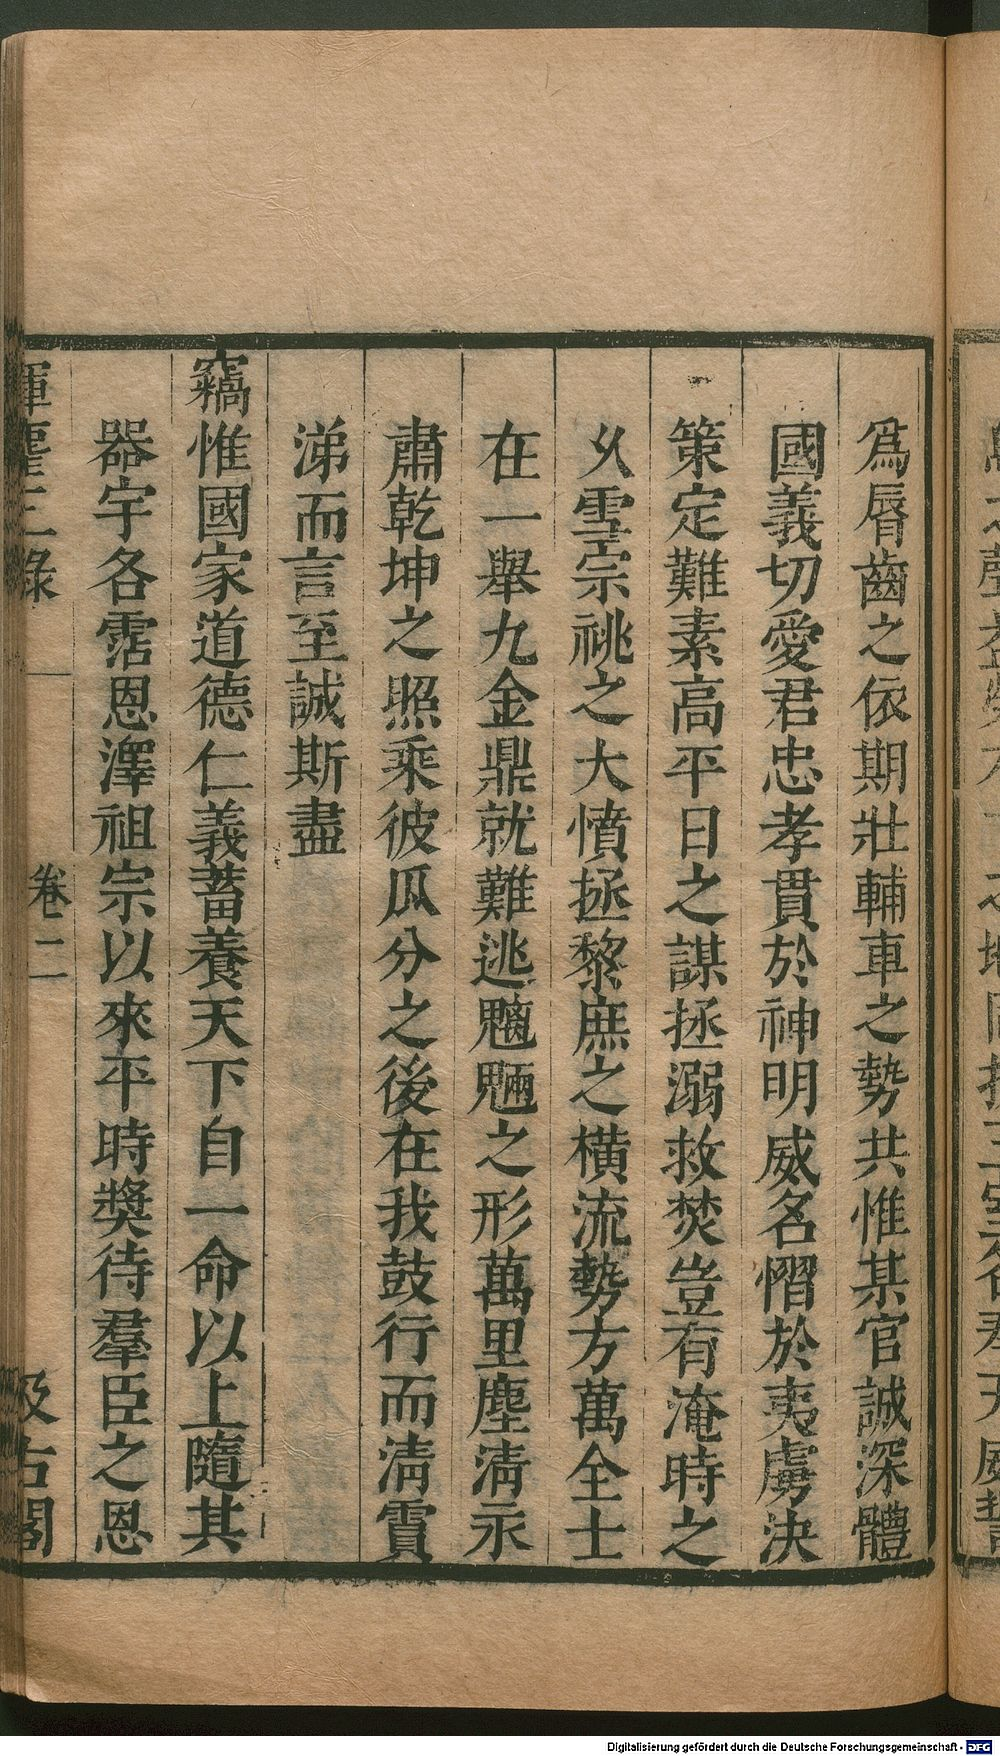 為脣齒之依期壯輔車之勢共惟某官誠深體
國義切愛君忠孝貫於神明威名慴於夷虜決
策定難素高平日之謀拯溺救焚豈有淹時之
久雪宗祧之大憤拯黎庶之橫流勢方萬全士
在一舉九金鼎就難逃魑魎之形萬里塵清永
肅乾坤之照乘彼瓜分之後在我鼓行而清霣
涕而言至誠斯盡
竊惟國家道德仁義蓄養天下自一命以上隨其
器宇各霑恩澤祖宗以來平時獎待羣臣之恩
揮麈三錄 卷二 汲古閣
Digitalisierung gefördert durch die Deutsche Forschungsgemeinschaft - DFG